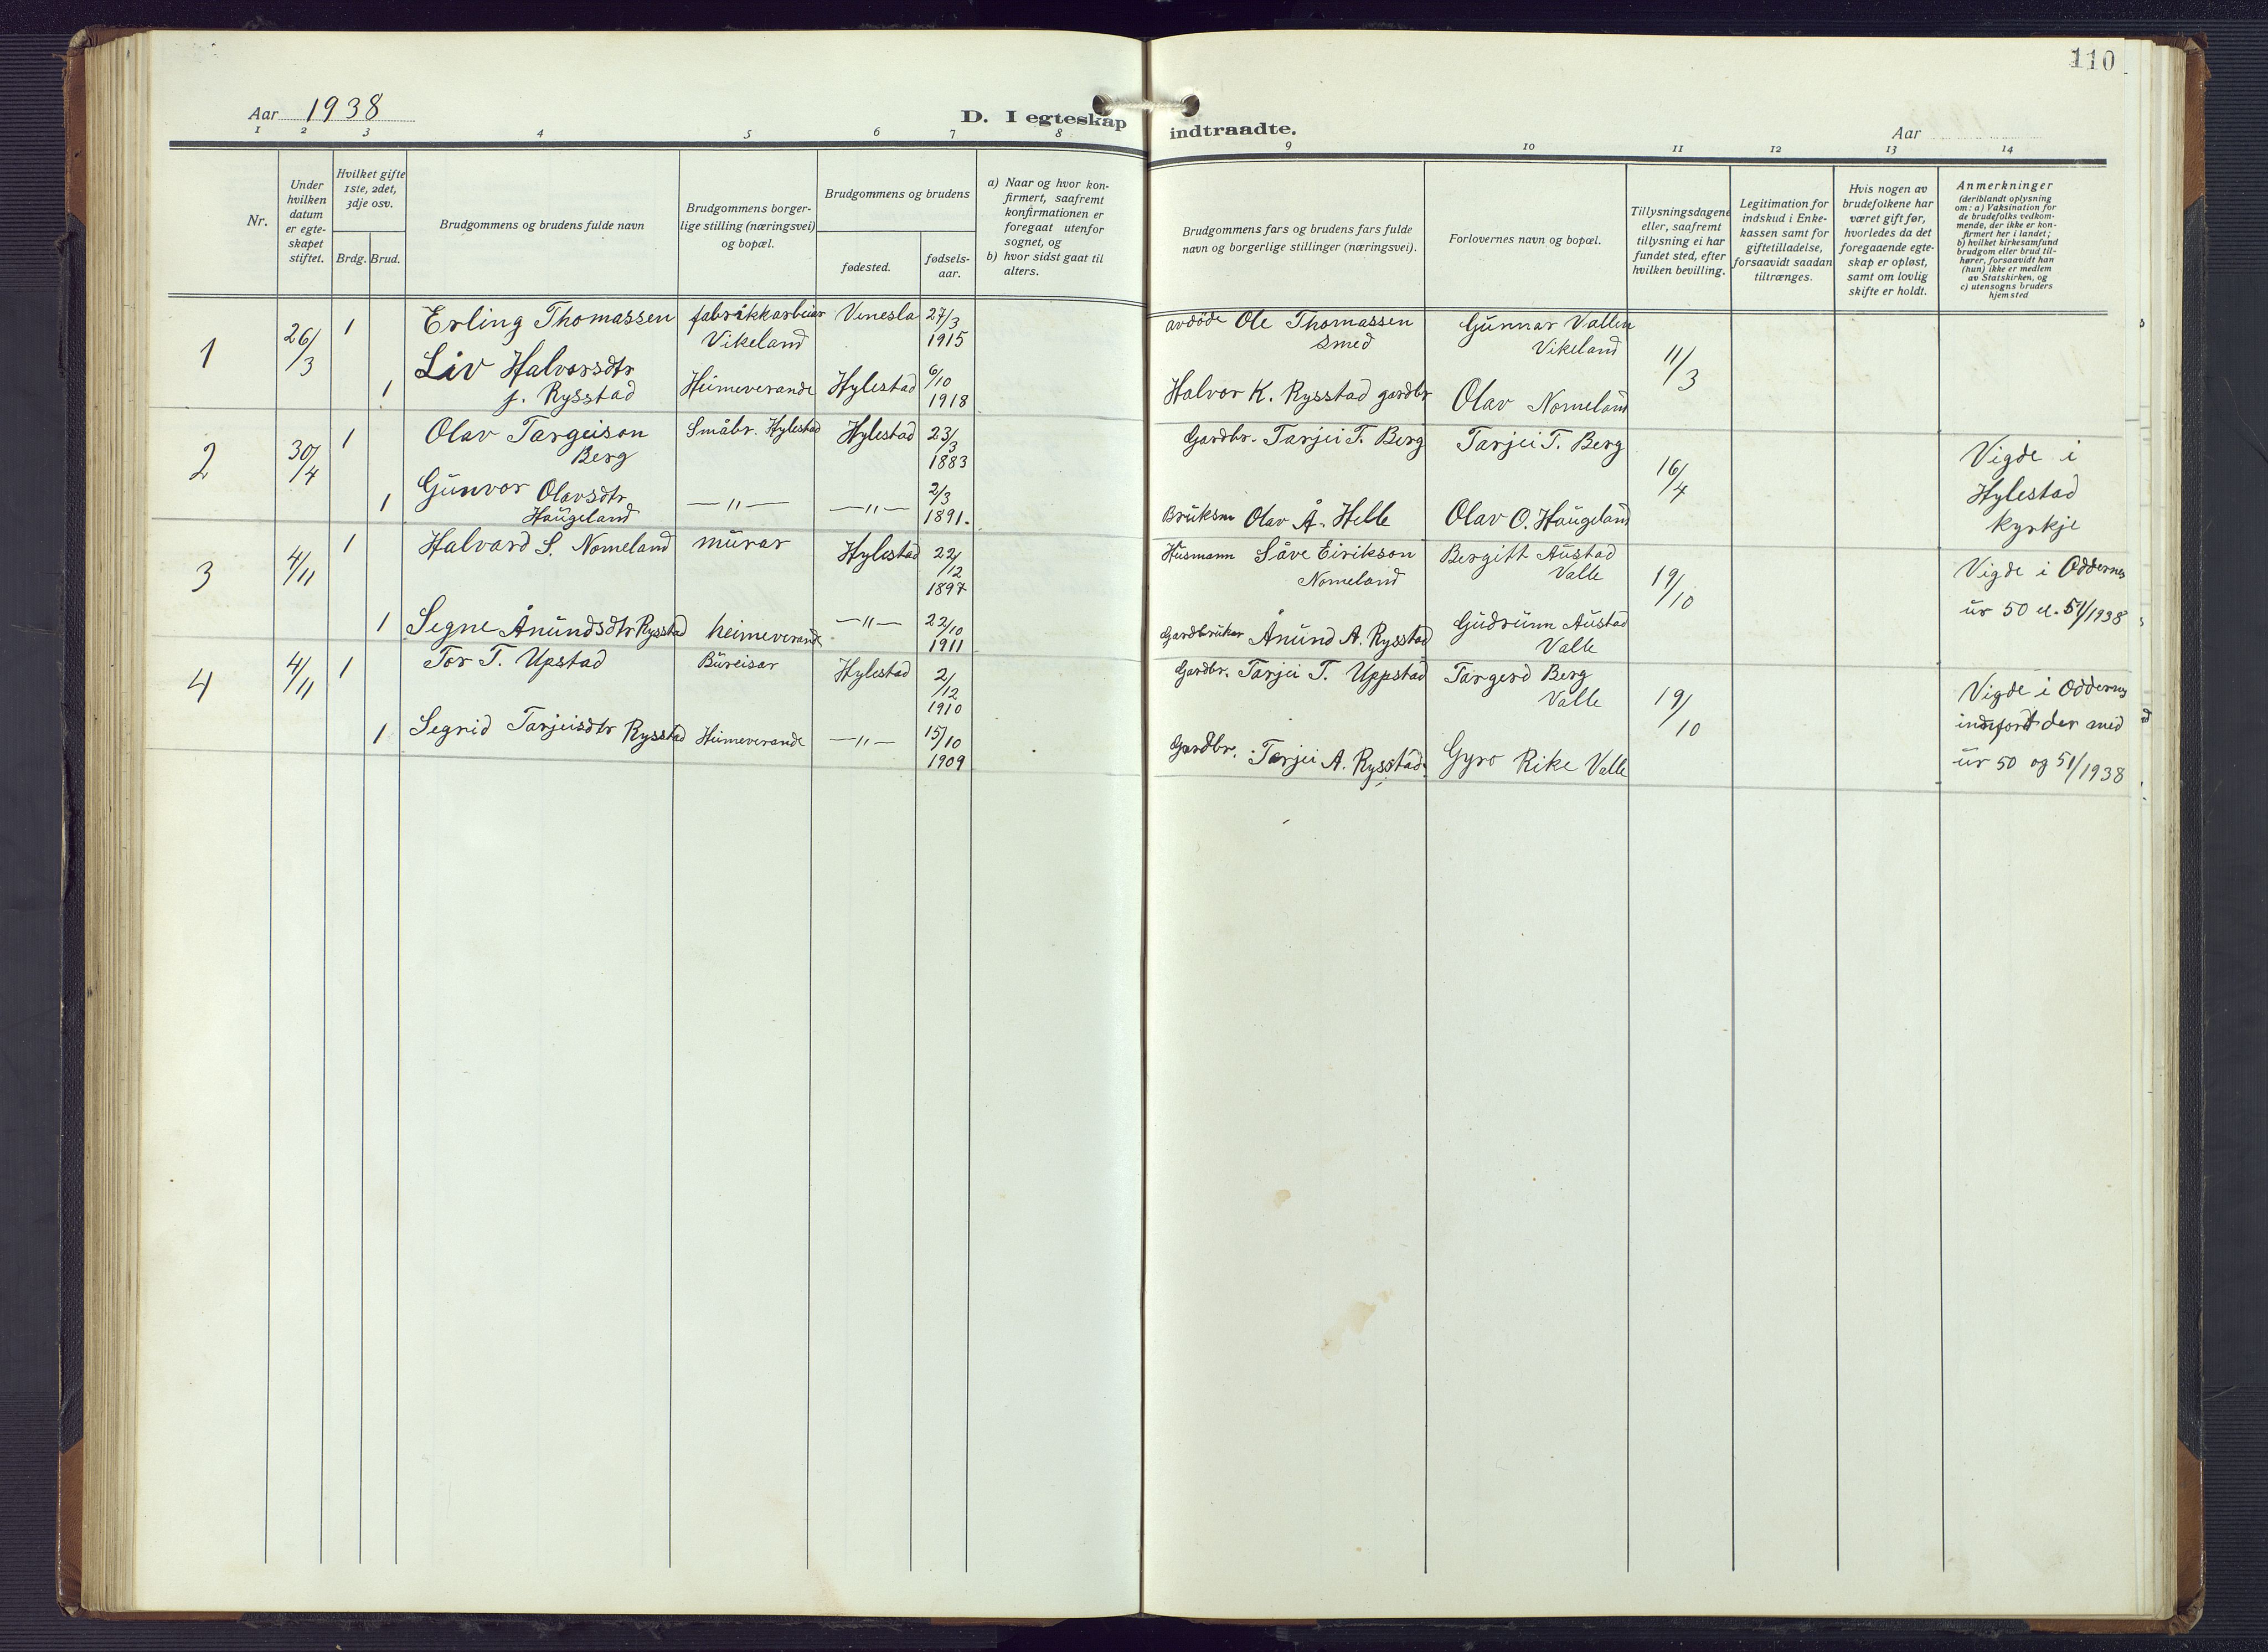 110
Aar 1938
D. I egteskap indtraadte.
Aar
1 2 3 4 5 6 7 8 9 10 11 12 13 14
Nr.
Under hvilken datum er egteskapet stiftet.
Hvilket gifte 1ste, 2det, 3dje osv.
Brdg. Brud.
Brudgommens og brudens fulde navn
Brudgommens borgerlige stilling (næringsvei) og bopæl.
Brudgommens og brudens
fødested.
fødselsaar.
a) Naar og hvor konfirmert, saafremt konfirmationen er foregaat utenfor sognet, og
b) hvor sidst gaat til alters.
Brudgommens fars og brudens fars fulde navn og borgerlige stillinger (næringsvei).
Forlovernes navn og bopæl.
Tillysningsdagene eller, saafremt tillysning ei har fundet sted, efter hvilken bevilling.
Legitimation for indskud i Enkekassen samt for giftetilladelse, forsaavidt saadan tiltrænges.
Hvis nogen av brudefolkene har været gift før, hvorledes da det foregaaende egteskap er opløst, samt om lovlig skifte er holdt.
Anmerkninger (deriblandt oplysning om: a) Vaksination for de brudefolks vedkommende, der ikke er konfirmert her i landet; b) hvilket kirkesamfund brudgom eller brud tilhører, forsaavidt han (hun) ikke er medlem av Statskirken, og c) utensogns bruders hjemsted
1 26/3 1 Erling Thomassen fabrikkarbeiar Vikeland Venesla 27/3 1915 avdöde Ole Thomassen smed Gunnar Vallen Vikeland 11/3
1 Liv Halvorsdtr f. Rysstad Heimeverande Hylestad 6/10 1918 Halvor K. Rysstad gardbr Olav Nomeland
2 30/4 1 Olav Targeison Berg Småbr. Hylestad Hylestad 23/3 1883 Gardbr. Tarjei T. Berg Tarjei T. Berg 16/4 Vigde i Hylestad kyrkje
1 Gunvor Olavsdtr Haugeland —"— —"— 2/3 1891. Bruksm Olav Å. Helle Olav O. Haugeland
3 4/11 1 Halvard S. Nomeland murar Hylestad 22/12 1897 Husmann Såve Eirikson Nomeland Bergitt Austad Valle 19/10 Vigde i Oddernes ur 50 el. 51/1938
1 Segne Ånundsdtr Rysstad heimeverande —"— 22/10 1911 Gardbrukar Ånund A. Rysstad Gudrunn Austad Valle
4 4/11 1 Tor T. Upstad Bureisar Hylestad 2/12 1910 Gardbr. Tarjei T. Uppstad Targerd Berg Valle 19/10 Vigde i Oddernes innfort der med ur 50 og 51/1938
1 Segrid Tarjeisdtr Rysstad Heimeverande —"— 15/10 1909 Gardbr. Tarjei A. Rysstad. Gyro Rike Valle